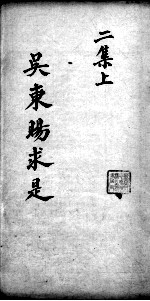 二集上
吳東暘求是